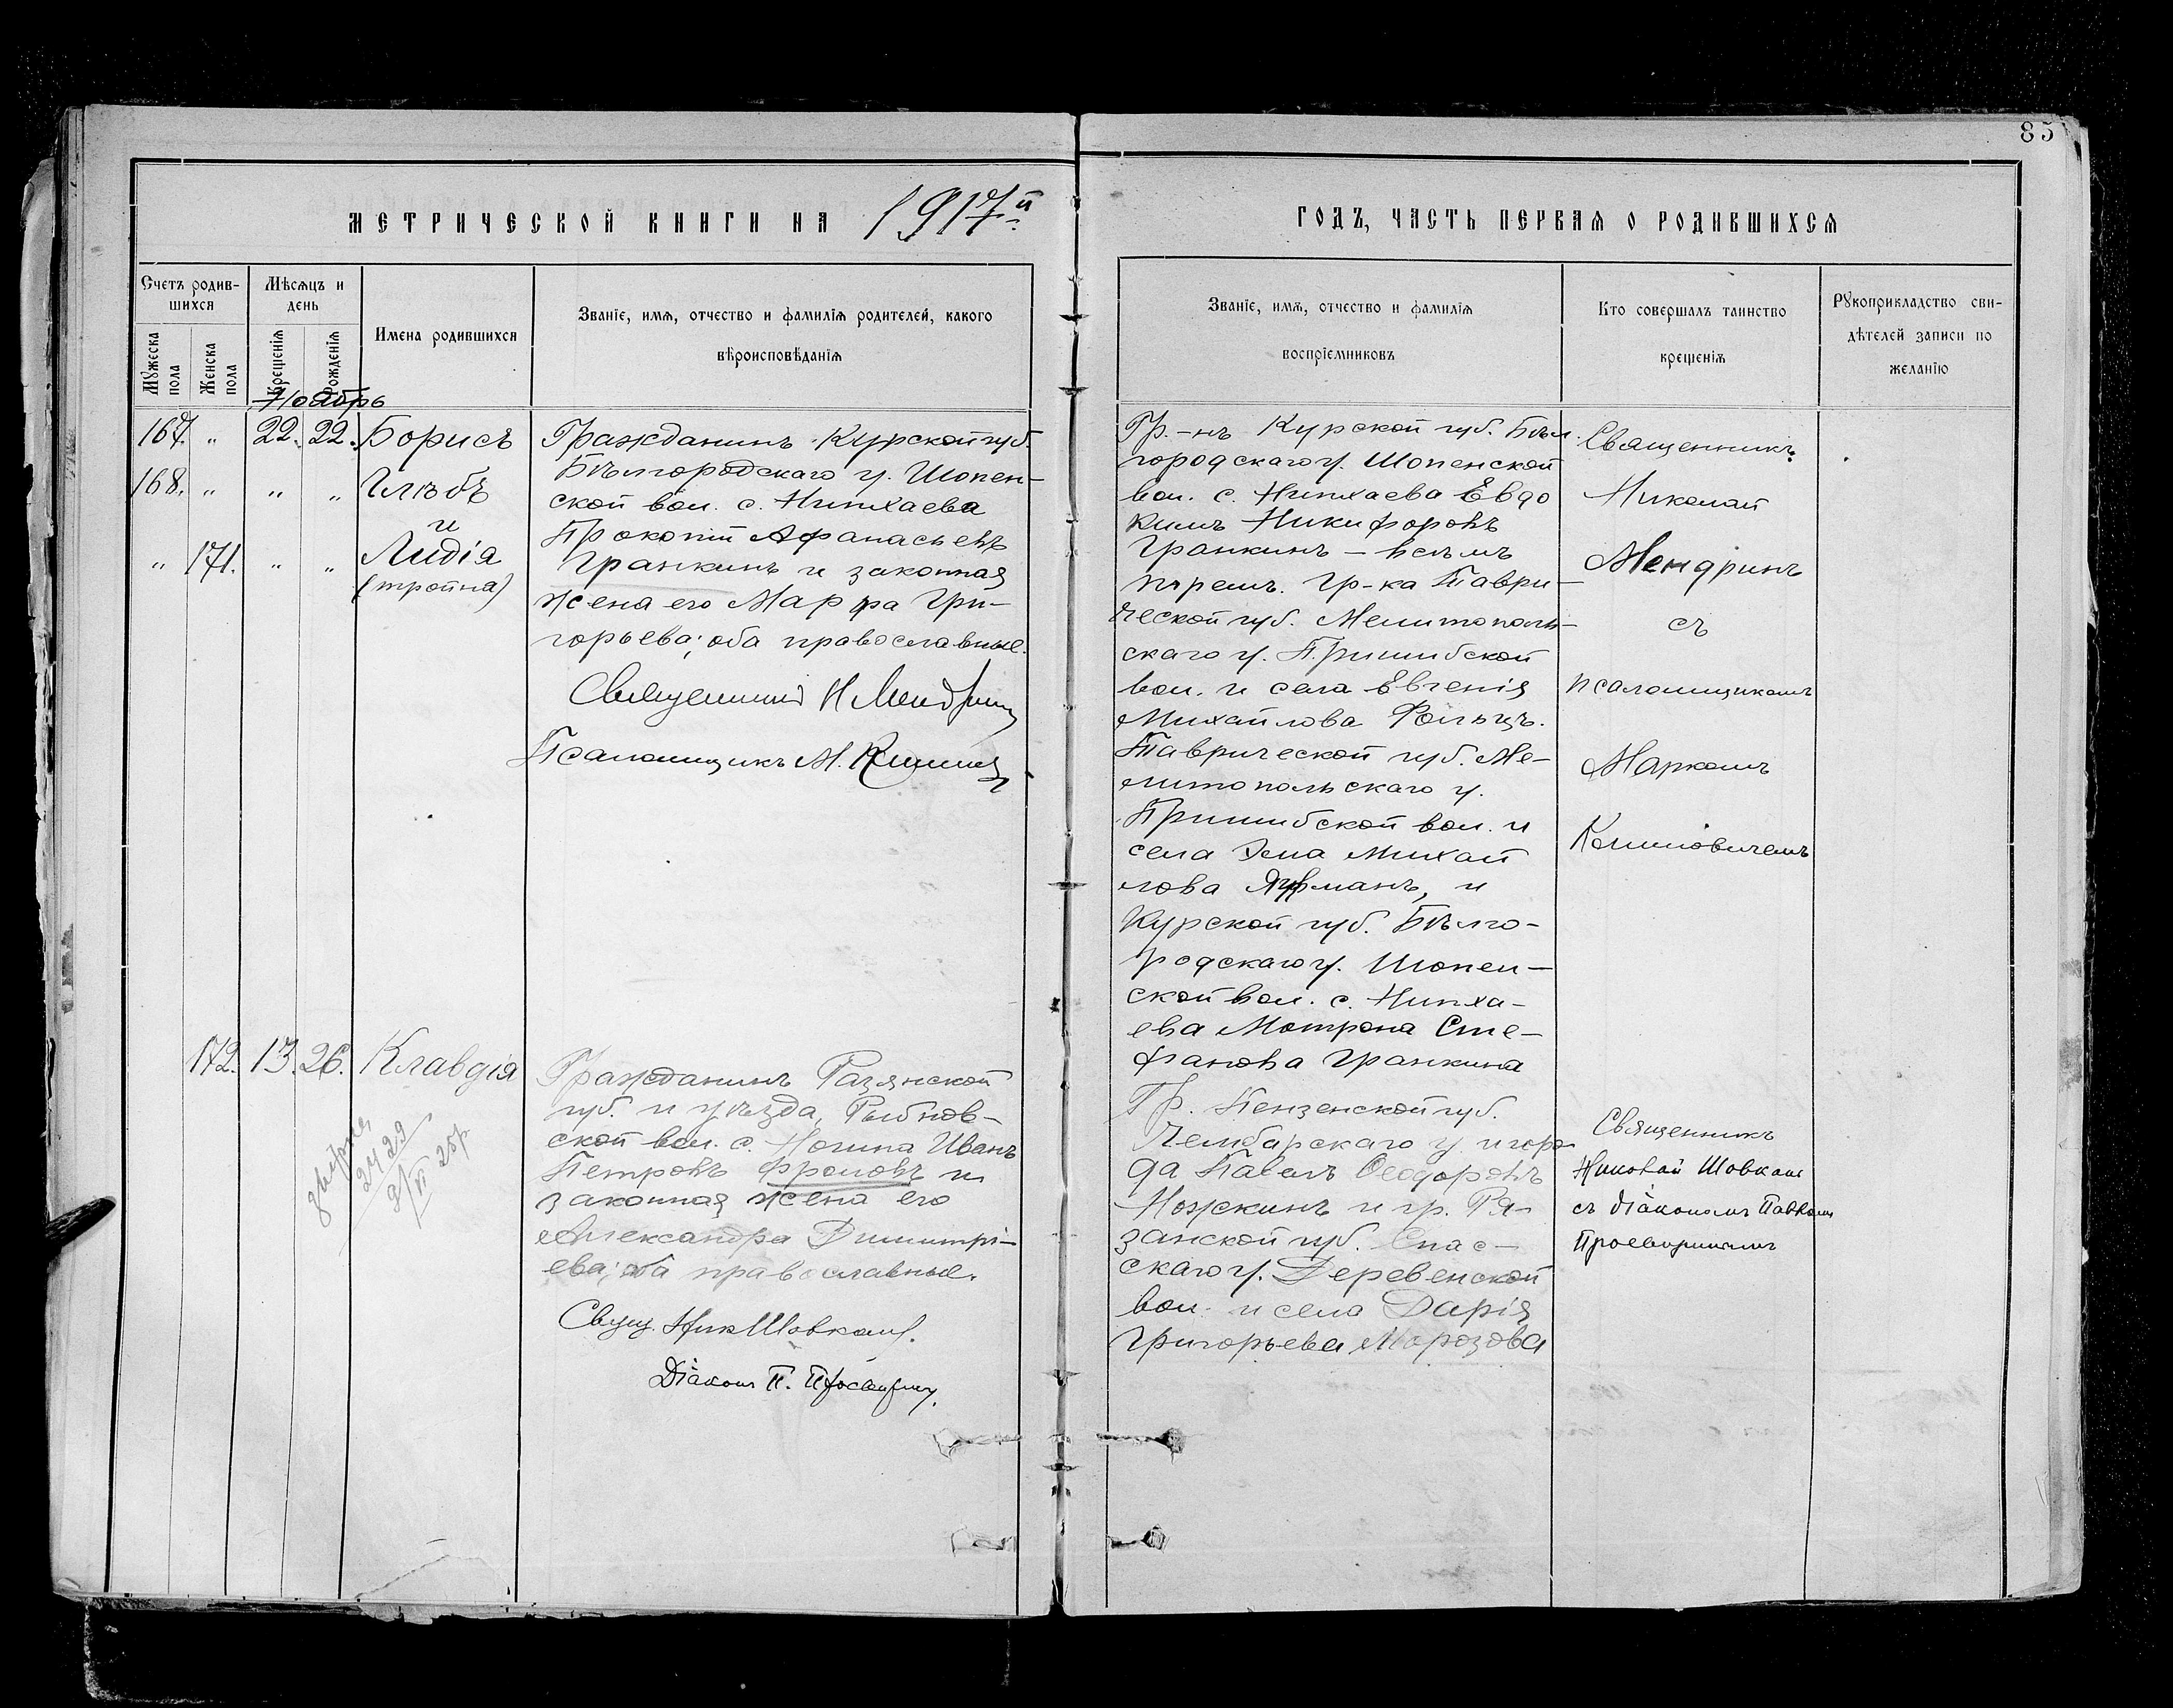 85
МЕТРИЧЕСКОЙ КНИГИ НА 1917й
ГОДЪ, ЧАСТЬ ПЕРВАЯ О РОДИВШИХСЯ
Счетъ родив-
шихся
Мужеска пола
Женска пола
Мѣсяцъ и
день
Крещенія
Рожденія
Имена родившихся
Званіе, имя, отчество и фамилія родителей, какого
вѣроисповѣданія
Званіе, имя, отчество и фамилія
воспріемниковъ
Кто совершалъ таинство
крещенія
Рукоприкладство сви-
дѣтелей записи по
желанію
Ноябрь
167. „ 22. 22. Борисъ
168. „ „ „ Глѣбъ
и
„ 171. „ „ Лидія
(тройна)
Гражданинъ Курской губ.
Бѣлгородскаго у. Шопен-
ской вол. с. Нипхаева
Прокопій Афанасьевъ
Гранкинъ и законная
жена его Марфа Гри-
горьева; оба православные.
Священникъ Н Мендринъ
Псаломщикъ М.
Гр.-нъ Курской губ. Бѣл
городскаго у. Шопенской
вол. с. Нипхаева Евдо
кимъ Никифоровъ
Гранкинъ – всѣмъ
тремъ. Гр-ка Таври-
ческой губ. Мелитополь-
скаго у. Пришибской
вол. и села Евгенія
Михайлова
Таврической губ. Ме-
литопольскаго у.
Пришибской вол. и
села Михай
лова и
Курской губ. Бѣлго-
родскаго у. Шопен-
ской вол. с. Нипха-
ева Мотрона Сте-
фанова Гранкина
Священникъ
Николай
Мендринъ
съ
псаломщикомъ
Маркомъ
Климовичемъ
172. 13. 26. Клавдія
2429
Гражданинъ Разянской
губ. и уѣзда, Рыбнов-
ской вол. с. Ногина Иванъ
Петровъ Фроловъ и
законная жена его
Александра Димитрі-
ева; оба православные.
Свящ. Ник Шовкопл.
Діаконъ П. Просвирнин.
Гр. Пензенской губ.
Чембарскаго у. и горо
да Павелъ Ѳеодоровъ
Ножкинъ и гр. Ря-
занской губ. Спас-
скаго у. Деревенской
вол. и села Дарія
Григорьева Морозова
Священникъ
Николай
съ діакономъ Павломъ